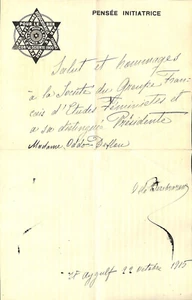 PENSÉE INITIATRICE
Salut et hommages
à la Société du Groupe Fran-
çais d'Etudes Féministes et
à sa distinguée Présidente
Madame Oddo-Deflou
St Aygulf 22 octobre 1905